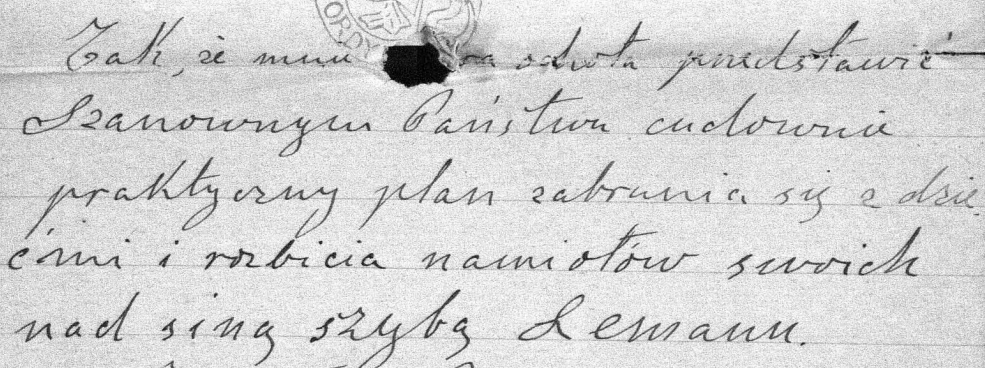 Tak, że mnie odwoła przedstawić
Szanownym Państwu cudownie
praktyczny plan zabrania się z dzie-
ćmi i rozbicia namiotów swoich
nad siną szybą Lemanu.